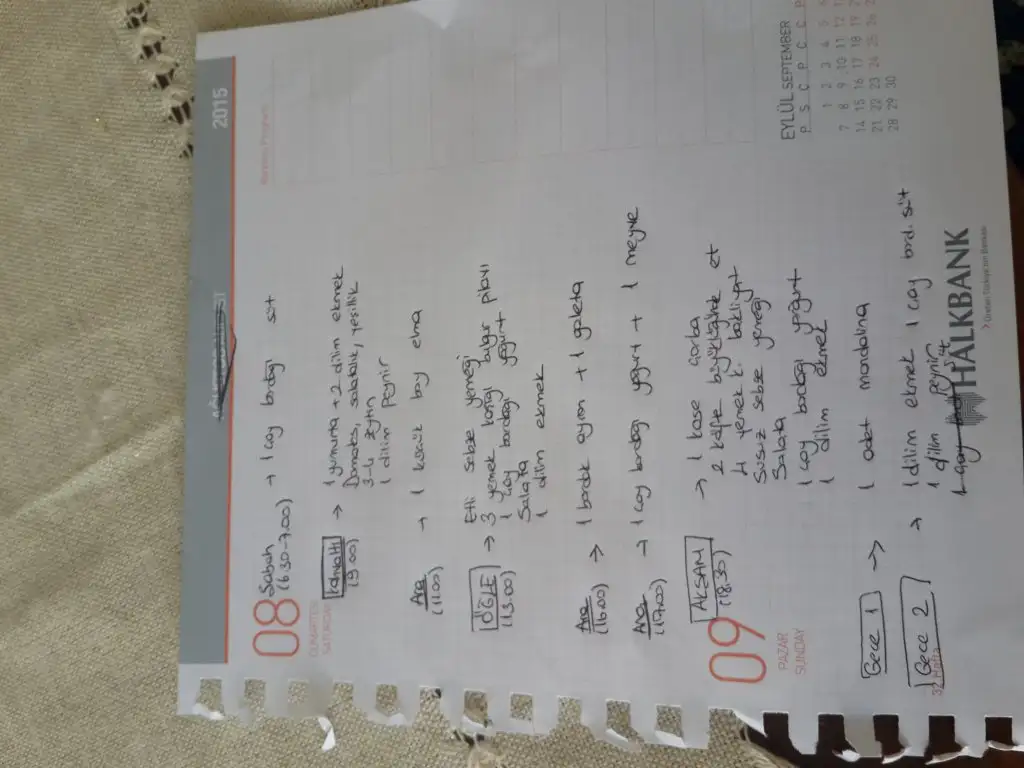 2015
08
CUMARTESİ
SATURDAY
Sabah → 1 çay bardağı süt
(6.30-7.00)
KAHVALTI → 1 yumurta + 2 dilim ekmek
(9.00)
Domates, salatalık, yeşillik
3-4 zeytin
1 dilim peynir
Ara → 1 küçük boy elma
(11.00)
Etli sebze yemeği
ÖĞLE → 3 yemek kaşığı bulgur pilavı
(13.00)
1 çay bardağı yoğurt
Salata
1 dilim ekmek
Ara → 1 bardak ayran + 1 galeta
(16.00)
Ara → 1 çay bardağı yoğurt + 1 meyve
(17.00)
09
PAZAR
SUNDAY
AKŞAM → 1 kase çorba
(18.30)
2 köfte büyüklüğünde et
4 yemek k. bakliyat
Susuz sebze yemeği
Salata
1 çay bardağı yoğurt
1 dilim ekmek
Gece 1 → 1 adet mandalina
Gece 2 → 1 dilim ekmek 1 çay bard. süt
1 dilim peynir
32. Hafta
EYLÜL SEPTEMBER
P S Ç P C C P
1 2 3 4 5 6
7 8 9 10 11 12 13
14 15 16 17 18 19 20
21 22 23 24 25 26 27
28 29 30
HALKBANK
Üreten Türkiye'nin Bankası